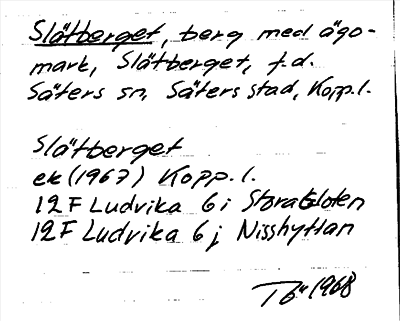 Slätberget, berg med ägo-
mark, Slätberget, f.d.
Säters sn, Säters stad, Kopp.l.
Slätberget
ek (1967) Kopp.l.
12F Ludvika 6i Stora
12F Ludvika 6j Nisshyttan
1968